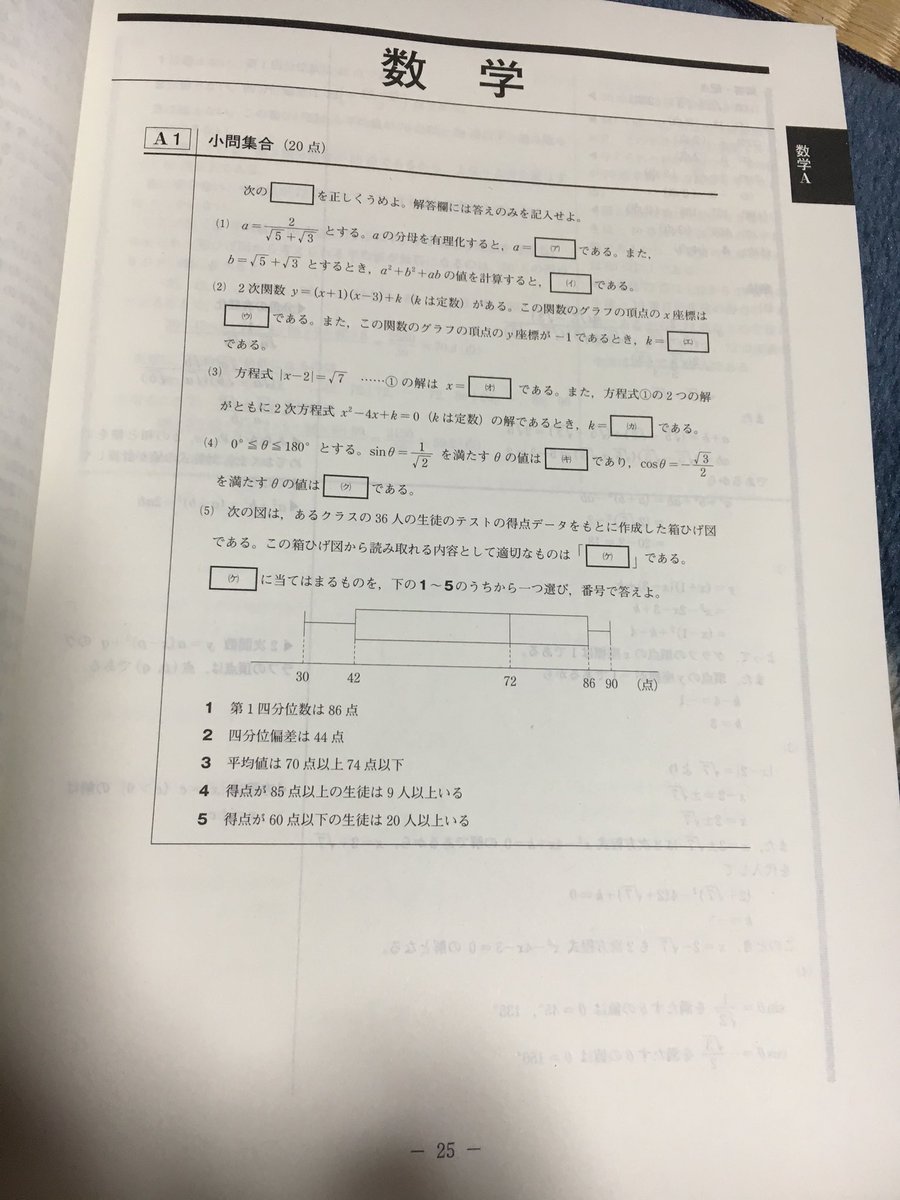 数 学
数学A
A1 小問集合 (20点)
次の□を正しくうめよ。解答欄には答えのみを記入せよ。
(1) a=2/(√5+√3) とする。aの分母を有理化すると，a=(ア)である。また，
b=√5+√3 とするとき，a²+b²+abの値を計算すると，(イ)である。
(2) 2次関数 y=(x+1)(x-3)+k (kは定数) がある。この関数のグラフの頂点のx座標は
(ウ)である。また，この関数のグラフの頂点のy座標が-1であるとき，k=(エ)
である。
(3) 方程式 |x-2|=√7 ……①の解は x=(オ)である。また，方程式①の2つの解
がともに2次方程式 x²-4x+k=0 (kは定数) の解であるとき，k=(カ)である。
(4) 0°≦θ≦180° とする。sinθ=1/√2 を満たすθの値は(キ)であり，cosθ=-√3/2
を満たすθの値は(ク)である。
(5) 次の図は，あるクラスの36人の生徒のテストの得点データをもとに作成した箱ひげ図
である。この箱ひげ図から読み取れる内容として適切なものは「(ケ)」である。
(ケ)に当てはまるものを，下の1～5のうちから一つ選び，番号で答えよ。
30 42 72 86 90 (点)
1 第1四分位数は86点
2 四分位偏差は44点
3 平均値は70点以上74点以下
4 得点が85点以上の生徒は9人以上いる
5 得点が60点以下の生徒は20人以上いる
— 25 —